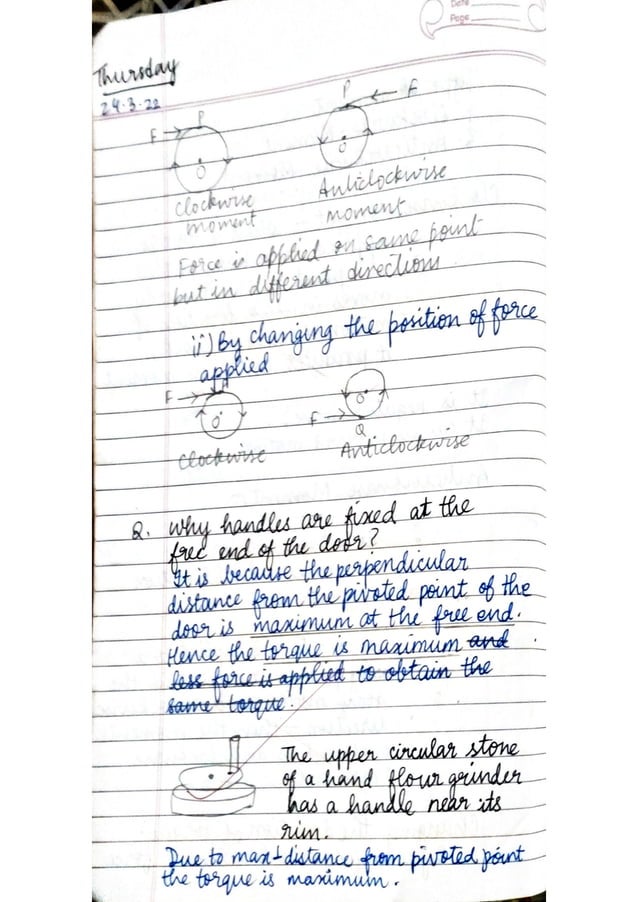 Date
Page
Thursday
24.3.22
F P
O
Clockwise
moment
P F
O
Anticlockwise
moment
Force is applied on same point
but in different directions
ii) By changing the position of force
applied
F
O
Clockwise
O
F
Q
Anticlockwise
Q. Why handles are fixed at the
free end of the door?
It is because the perpendicular
distance from the pivoted point of the
door is maximum at the free end.
Hence the torque is maximum and
less force is applied to obtain the
same torque.
The upper circular stone
of a hand flour grinder
has a handle near its
rim.
Due to max ⊥ distance from pivoted point
the torque is maximum.